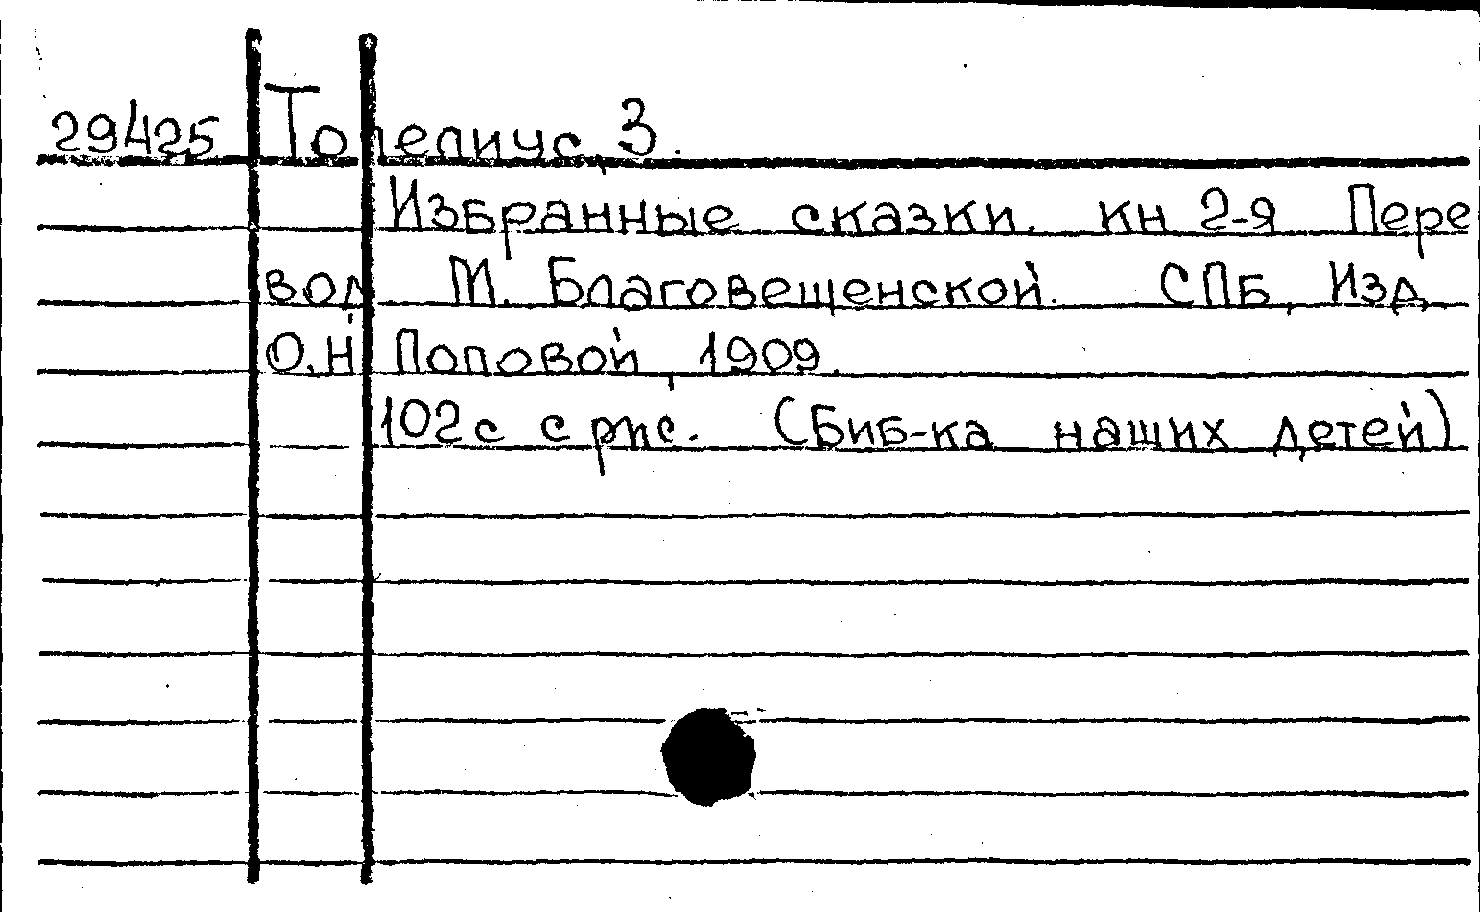 29425 Топелиус, З.
Избранные сказки. кн 2-я Пере
вод М. Благовещенской. СПБ, Изд.
О.Н. Поповой, 1909.
102с с рис. (Биб-ка наших детей)